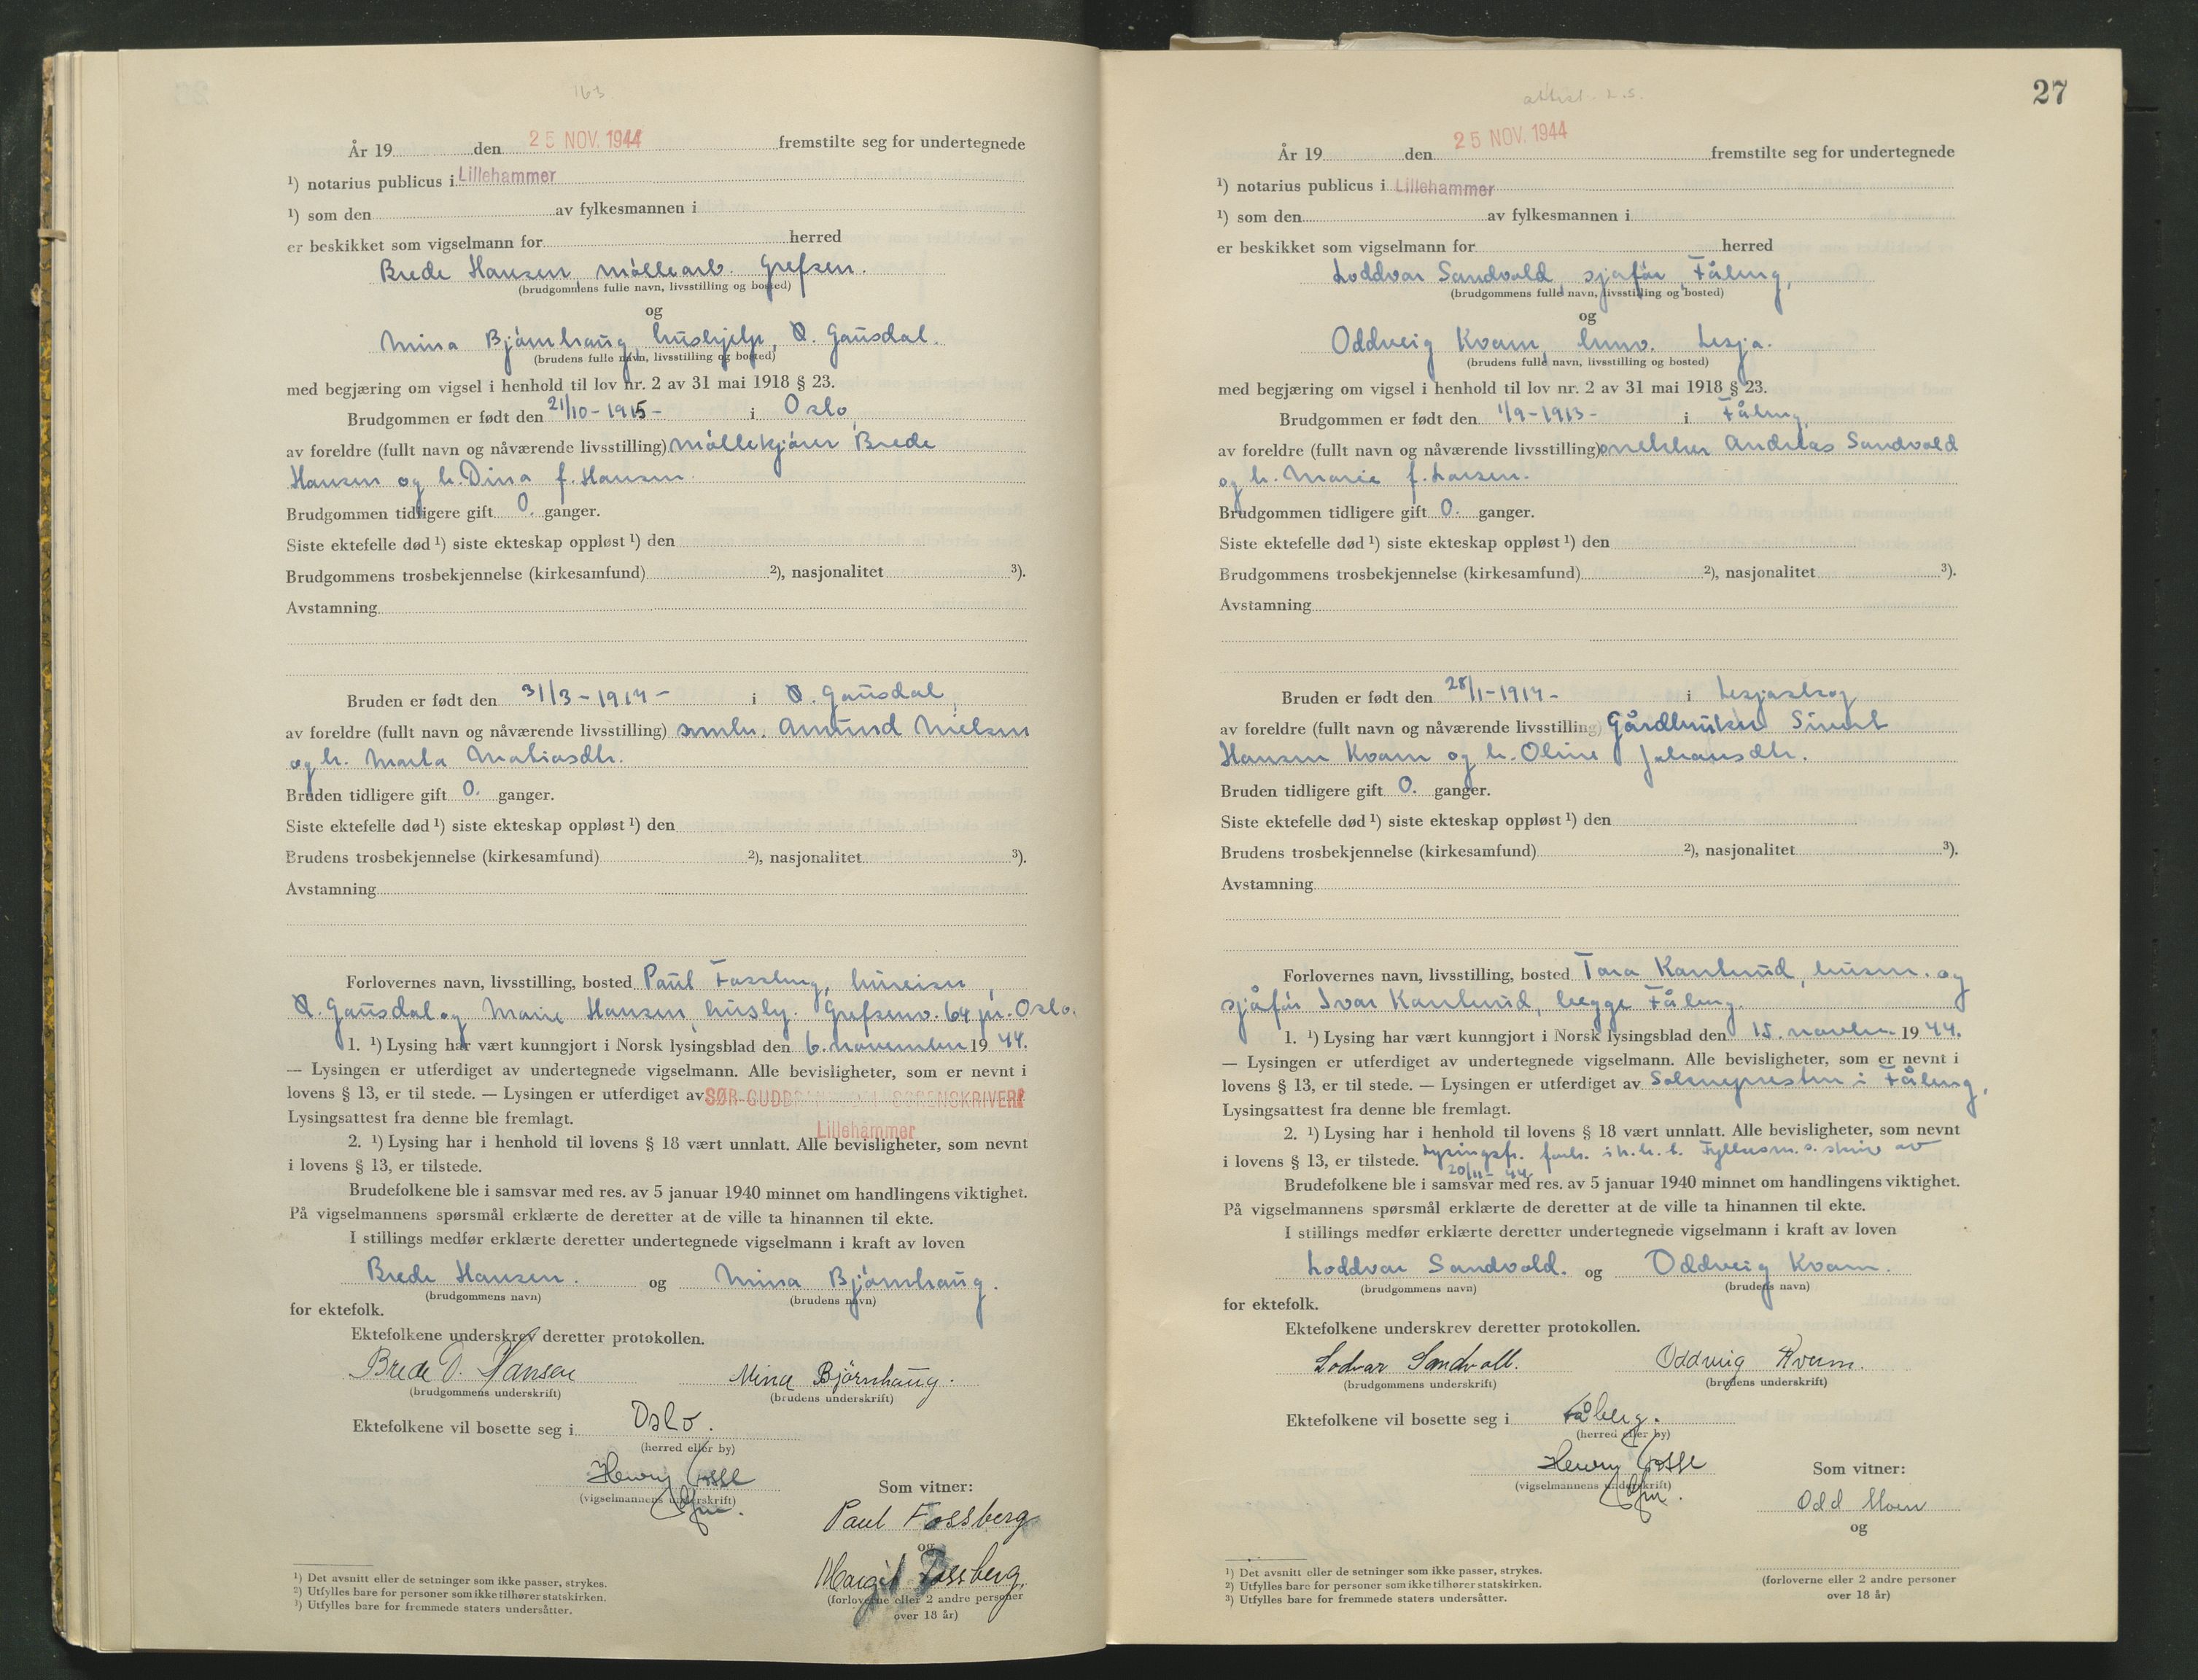 163
År 19 den 25 NOV. 1944 fremstilte seg for undertegnede
¹) notarius publicus i Lillehammer
¹) som den av fylkesmannen i
er beskikket som vigselmann for herred
Brede Hansen, möllearb. Grefsen.
(brudgommens fulle navn, livsstilling og bosted)
og
Mina Bjørnhaug, hushjelp, Ø. Gausdal.
(brudens fulle navn, livsstilling og bosted)
med begjæring om vigsel i henhold til lov nr. 2 av 31 mai 1918 § 23.
Brudgommen er født den 21/10-1915- i Oslo,
av foreldre (fullt navn og nåværende livsstilling) möllekjører Brede
Hansen og h. Dina f. Hansen
Brudgommen tidligere gift 0. ganger.
Siste ektefelle død ¹) siste ekteskap oppløst ¹) den
Brudgommens trosbekjennelse (kirkesamfund) ²), nasjonalitet ³).
Avstamning
Bruden er født den 31/3-1914- i Ø. Gausdal,
av foreldre (fullt navn og nåværende livsstilling) smbr. Amund Nielsen
og h. Marta Matiasdtr.
Bruden tidligere gift 0. ganger.
Siste ektefelle død ¹) siste ekteskap oppløst ¹) den
Brudens trosbekjennelse (kirkesamfund) ²), nasjonalitet ³).
Avstamning
Forlovernes navn, livsstilling, bosted Paul Fossberg, bureiser,
Ø. Gausdal og Marie Hansen, husby. Grefsenv. 64 pr. Oslo.
1. ¹) Lysing har vært kunngjort i Norsk lysingsblad den 6. november 1944.
— Lysingen er utferdiget av undertegnede vigselmann. Alle bevisligheter, som er nevnt i
lovens § 13, er til stede. — Lysingen er utferdiget av SØR-GUDBRANDSDAL SORENSKRIVERI
Lysingsattest fra denne ble fremlagt. Lillehammer
2. ¹) Lysing har i henhold til lovens § 18 vært unnlatt. Alle bevisligheter, som nevnt
i lovens § 13, er tilstede.
Brudefolkene ble i samsvar med res. av 5 januar 1940 minnet om handlingens viktighet.
På vigselmannens spørsmål erklærte de deretter at de ville ta hinannen til ekte.
I stillings medfør erklærte deretter undertegnede vigselmann i kraft av loven
Brede Hansen. og Mina Bjørnhaug.
(brudgommens navn) (brudens navn)
for ektefolk.
Ektefolkene underskrev deretter protokollen.
Brede D. Hansen Mina Björnhaug.
(brudgommens underskrift) (brudens underskrift)
Ektefolkene vil bosette seg i Oslo.
(herred eller by)
Henry
(vigselmannens underskrift)
Som vitner:
Paul Fossberg
og
Margit Fossberg.
(forloverne eller 2 andre personer
over 18 år)
¹) Det avsnitt eller de setninger som ikke passer, strykes.
²) Utfylles bare for personer som ikke tilhører statskirken.
³) Utfylles bare for fremmede staters undersåtter.
27
attest L.S.
År 19 den 25 NOV. 1944 fremstilte seg for undertegnede
¹) notarius publicus i Lillehammer
¹) som den av fylkesmannen i
er beskikket som vigselmann for herred
Loddvar Sandvold, sjåfør, Fåberg,
(brudgommens fulle navn, livsstilling og bosted)
og
Oddveig Kvam, Lesja.
(brudens fulle navn, livsstilling og bosted)
med begjæring om vigsel i henhold til lov nr. 2 av 31 mai 1918 § 23.
Brudgommen er født den 1/9-1913- i Fåberg,
av foreldre (fullt navn og nåværende livsstilling) snekker Andreas Sandvold
og h. Marie f. Larsen.
Brudgommen tidligere gift 0. ganger.
Siste ektefelle død ¹) siste ekteskap oppløst ¹) den
Brudgommens trosbekjennelse (kirkesamfund) ²), nasjonalitet ³).
Avstamning
Bruden er født den 28/1-1914- i Lesjaskog
av foreldre (fullt navn og nåværende livsstilling) Gårdbruker Sivert
Hansen Kvam og h. Oline Johansdtr.
Bruden tidligere gift 0. ganger.
Siste ektefelle død ¹) siste ekteskap oppløst ¹) den
Brudens trosbekjennelse (kirkesamfund) ²), nasjonalitet ³).
Avstamning
Forlovernes navn, livsstilling, bosted Tora Kanterud, husm. og
sjåfør Ivar Kanterud, begge Fåberg.
1. ¹) Lysing har vært kunngjort i Norsk lysingsblad den 15. novbr. 1944.
— Lysingen er utferdiget av undertegnede vigselmann. Alle bevisligheter, som er nevnt i
lovens § 13, er til stede. — Lysingen er utferdiget av Soknepresten i Fåberg,
Lysingsattest fra denne ble fremlagt.
2. ¹) Lysing har i henhold til lovens § 18 vært unnlatt. Alle bevisligheter, som nevnt
i lovens § 13, er tilstede. Lysingsfr. fork. i h. h. t. Fylkesm. s. skriv av
20/11-44
Brudefolkene ble i samsvar med res. av 5 januar 1940 minnet om handlingens viktighet.
På vigselmannens spørsmål erklærte de deretter at de ville ta hinannen til ekte.
I stillings medfør erklærte deretter undertegnede vigselmann i kraft av loven
Loddvar Sandvold. og Oddveig Kvam.
(brudgommens navn) (brudens navn)
for ektefolk.
Ektefolkene underskrev deretter protokollen.
Lodvar Sandvoll. Oddveig Kvam.
(brudgommens underskrift) (brudens underskrift)
Ektefolkene vil bosette seg i Fåberg.
(herred eller by)
Henry
(vigselmannens underskrift)
Som vitner:
Odd Moen
og
(forloverne eller 2 andre personer
over 18 år)
¹) Det avsnitt eller de setninger som ikke passer, strykes.
²) Utfylles bare for personer som ikke tilhører statskirken.
³) Utfylles bare for fremmede staters undersåtter.